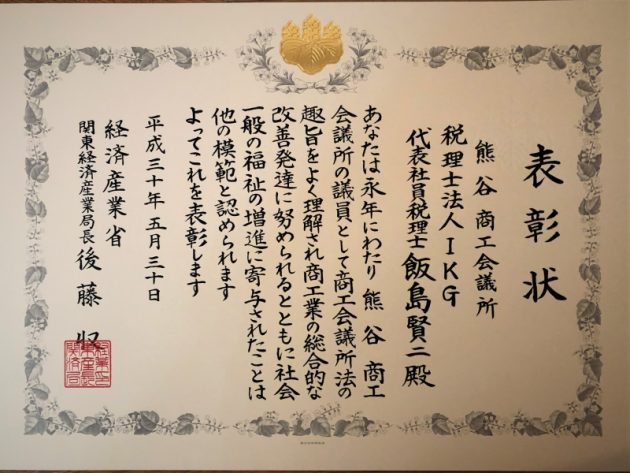 表彰状
熊谷商工会議所
税理士法人IKG
代表社員税理士 飯島賢二殿
あなたは永年にわたり熊谷商工
会議所の議員として商工会議所法の
趣旨をよく理解され商工業の総合的な
改善発達に努められるとともに社会
一般の福祉の増進に寄与されたことは
他の模範と認められます
よってこれを表彰します
平成三十年五月三十日
経済産業省
関東経済産業局長 後藤収